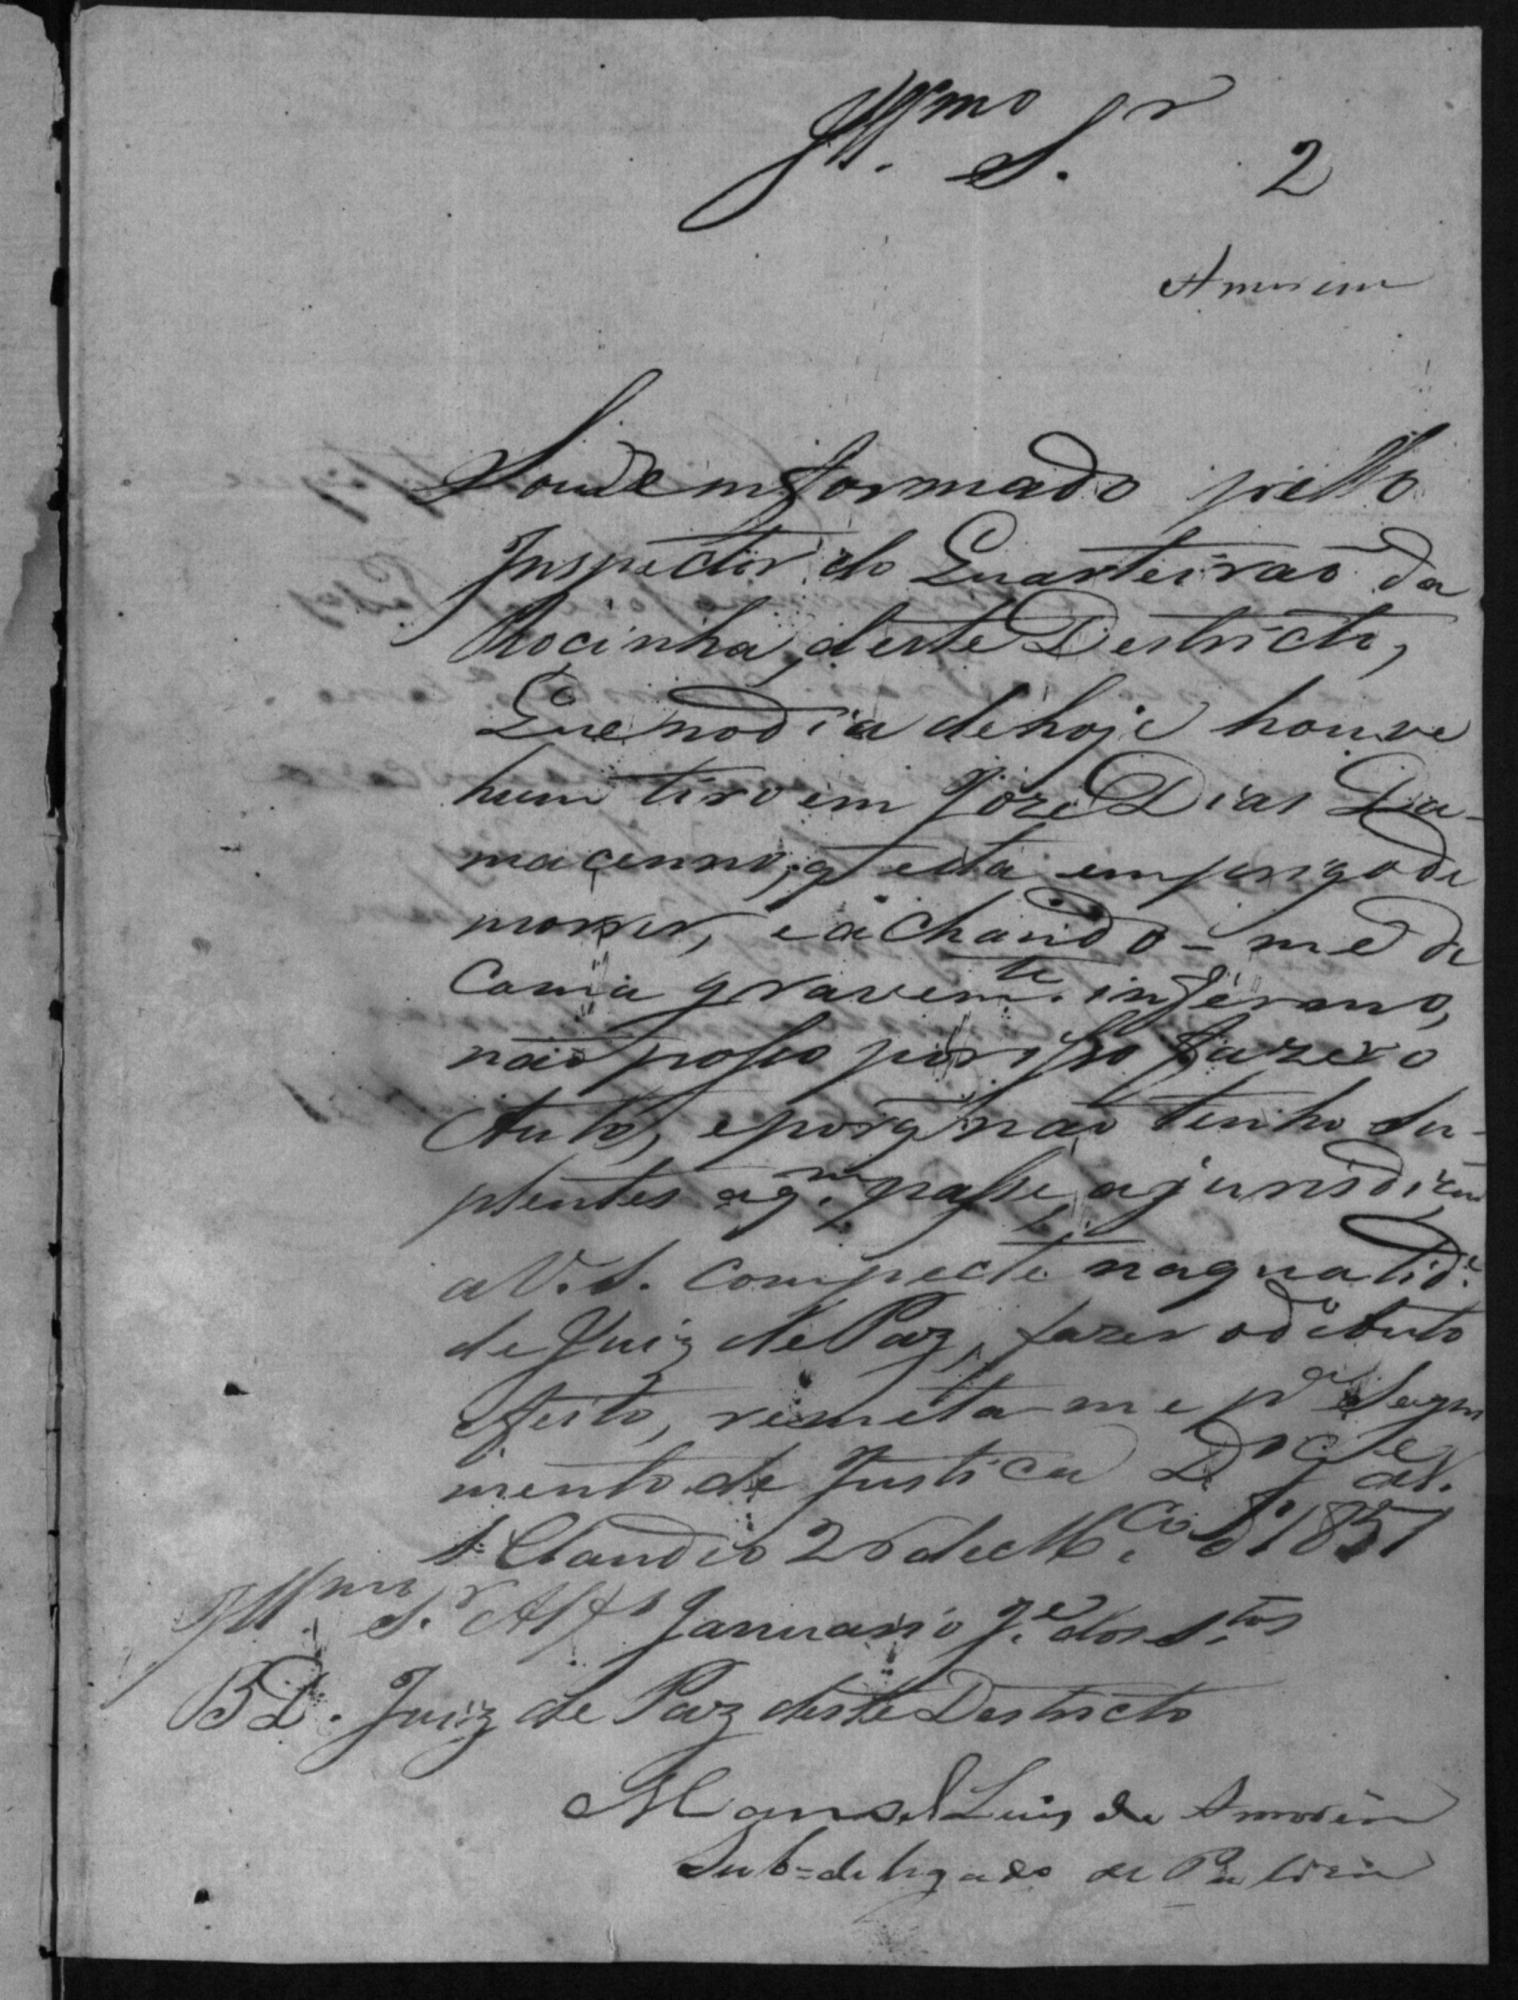 Ill.mo S.r
2
Amorim
Sou emformado pello
Inspector do Quarteirão da
Rocinha, deste Destricto,
Que no dia de hoje houve
hum tiro em Joze Dias Da-
macenno, q' está em prigo de
morrer, e achando-me de
Cama gravem.te infermo,
não posso por isso fazer o
Auto, e porq' não tenho Su-
plentes a q.m passe, a jurisdicam
a V. S. Compecte na qualid.e
de Juiz de Paz, fazer o d.o Auto
e feito, remeta-me p.a Segui
mento de Justica D.s G.e a V.
S. Claudio 26 de M.ço d' 1851
Ill.mo S.r Alf.s Januario J.e dos S.tos
Juiz de Paz deste Destricto
Manoel Luis de Amorim
Sub=delegado de Policia